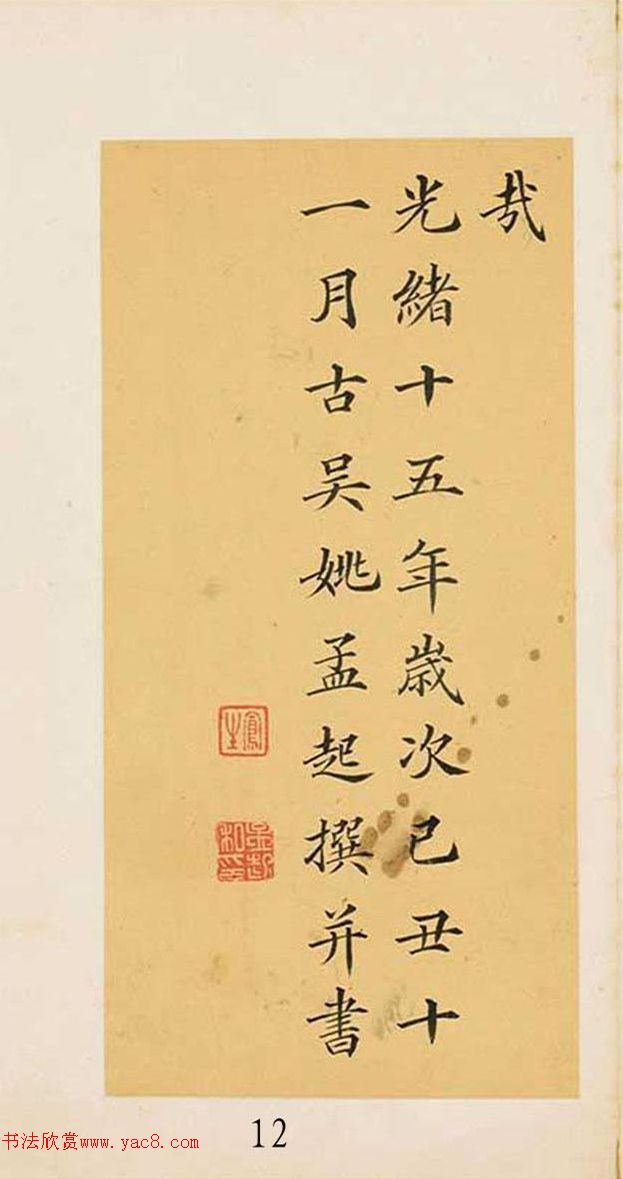 哉
光緒十五年歲次己丑十
一月古吴姚孟起撰并書
鳳生
12
书法欣赏www.yac8.com